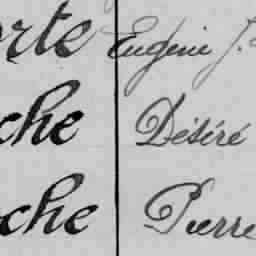 orte Eugénie J.
che Désiré
oche Pierre